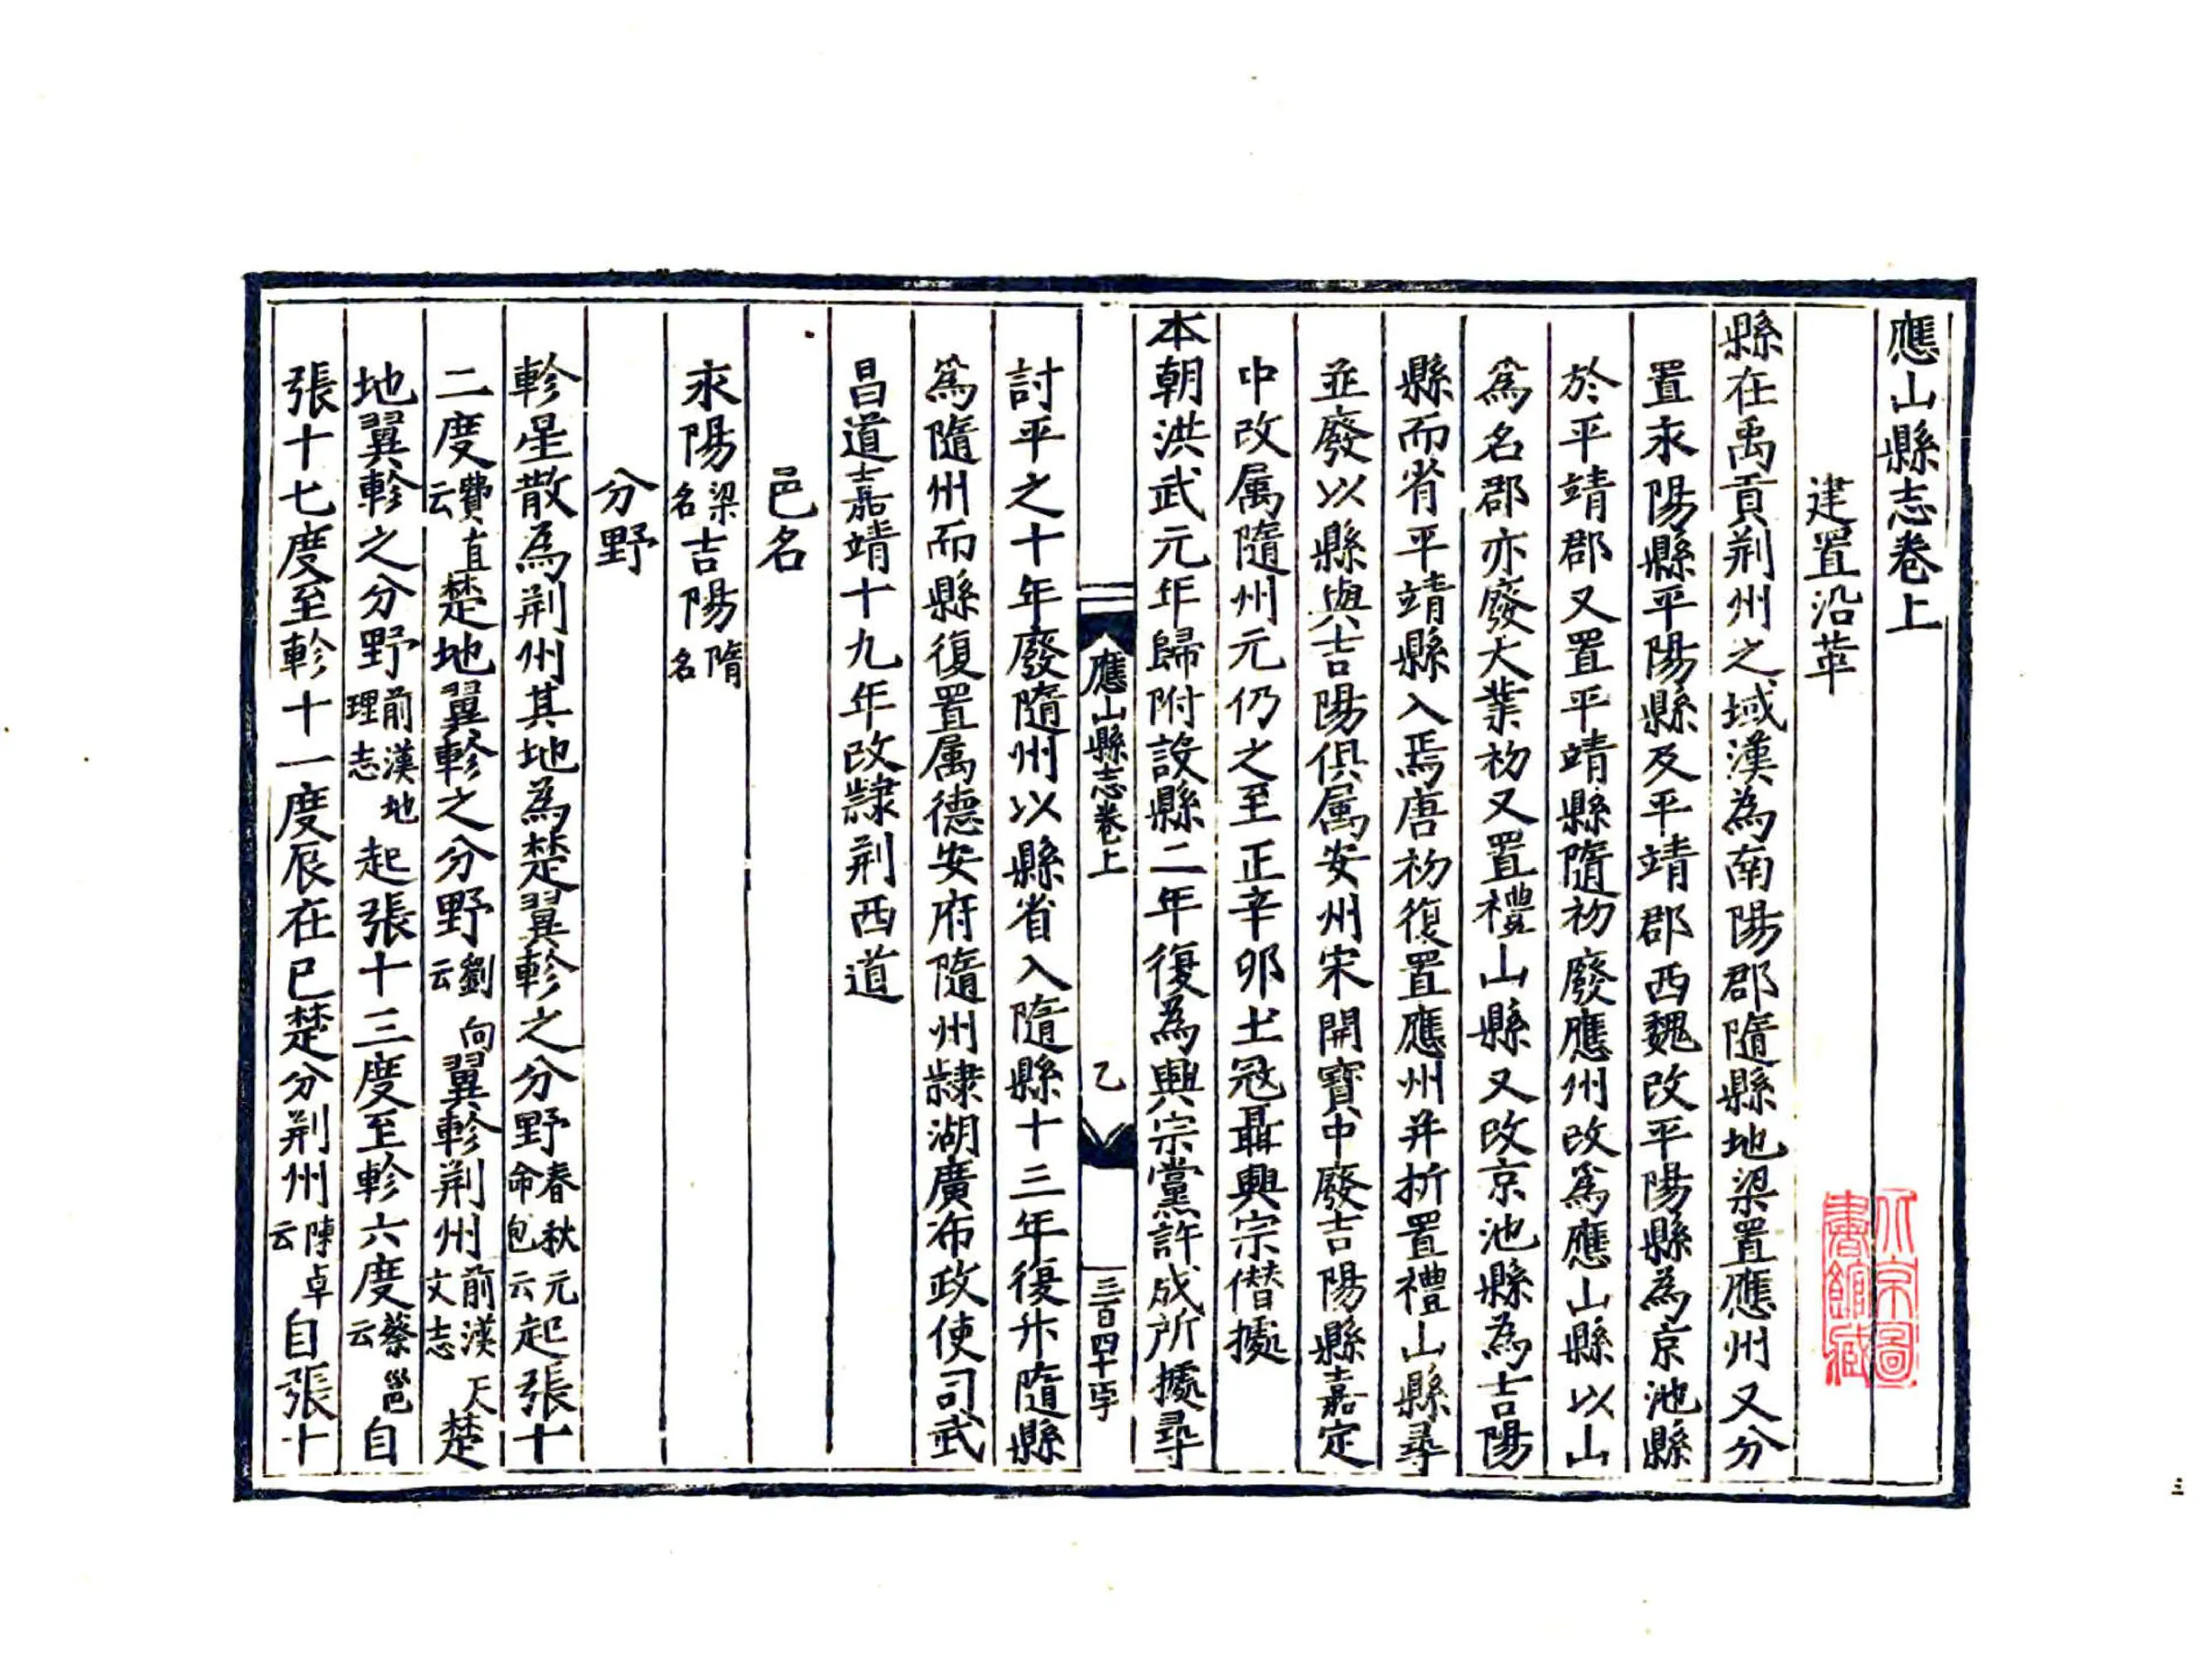 應山縣志卷上
建置沿革
縣在禹貢荆州之域漢為南陽郡隨縣地梁置應州又分
置永陽縣平陽縣及平靖郡西魏改平陽縣為京池縣
於平靖郡又置平靖縣隨初廢應州改為應山縣以山
為名郡亦廢大業初又置禮山縣又改京池縣為吉陽
縣而省平靖縣入焉唐初復置應州并折置禮山縣尋
並廢以縣與吉陽俱属安州宋開寶中廢吉陽縣嘉定
中改属隨州元仍之至正辛卯土冦聶興宗僣據
本朝洪武元年歸附設縣二年復為興宗黨許成所據尋
應山縣志卷上
乙
三百四十
討平之十年廢隨州以縣省入隨縣十三年復升隨縣
為隨州而縣復置属德安府隨州隸湖廣布政使司武
昌道嘉靖十九年改隸荆西道
邑名
永陽梁名吉陽隋名
分野
軫星散為荆州其地為楚翼軫之分野春秋元命包云起張十
二度費直云楚地翼軫之分野劉向云翼軫荆州前漢天文志楚
地翼軫之分野前漢地理志起張十三度至軫六度蔡邕云自
張十七度至軫十一度辰在巳楚分荆州陳卓云自張十
北京圖書館藏
三